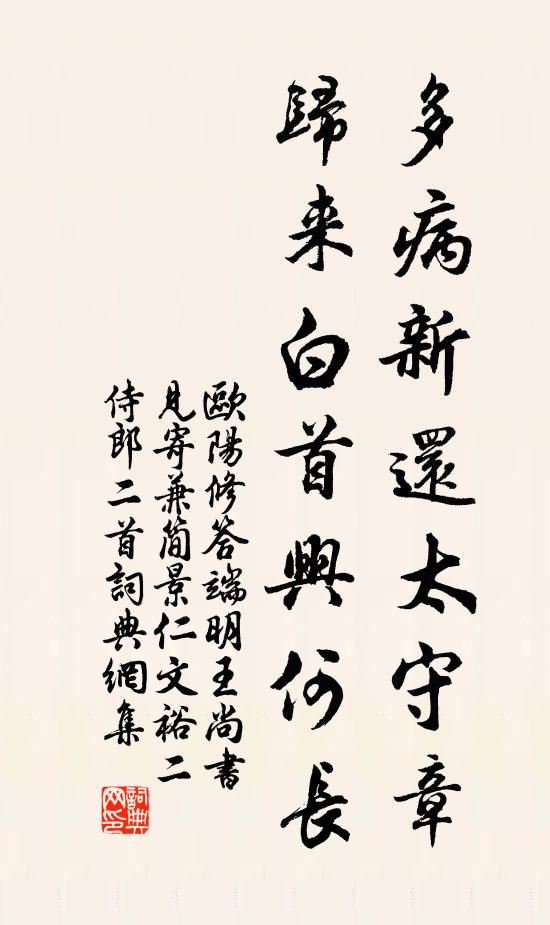 多病新還太守章
歸来白首興何長
歐陽修答端明王尚書
見寄兼簡景仁文裕二
侍郎二首詞典網集
詞典
网印